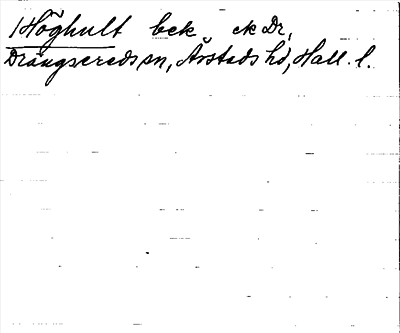 1 Höghult bek ek Dr,
Drängsereds sn, Årstads hd, Hall. l.